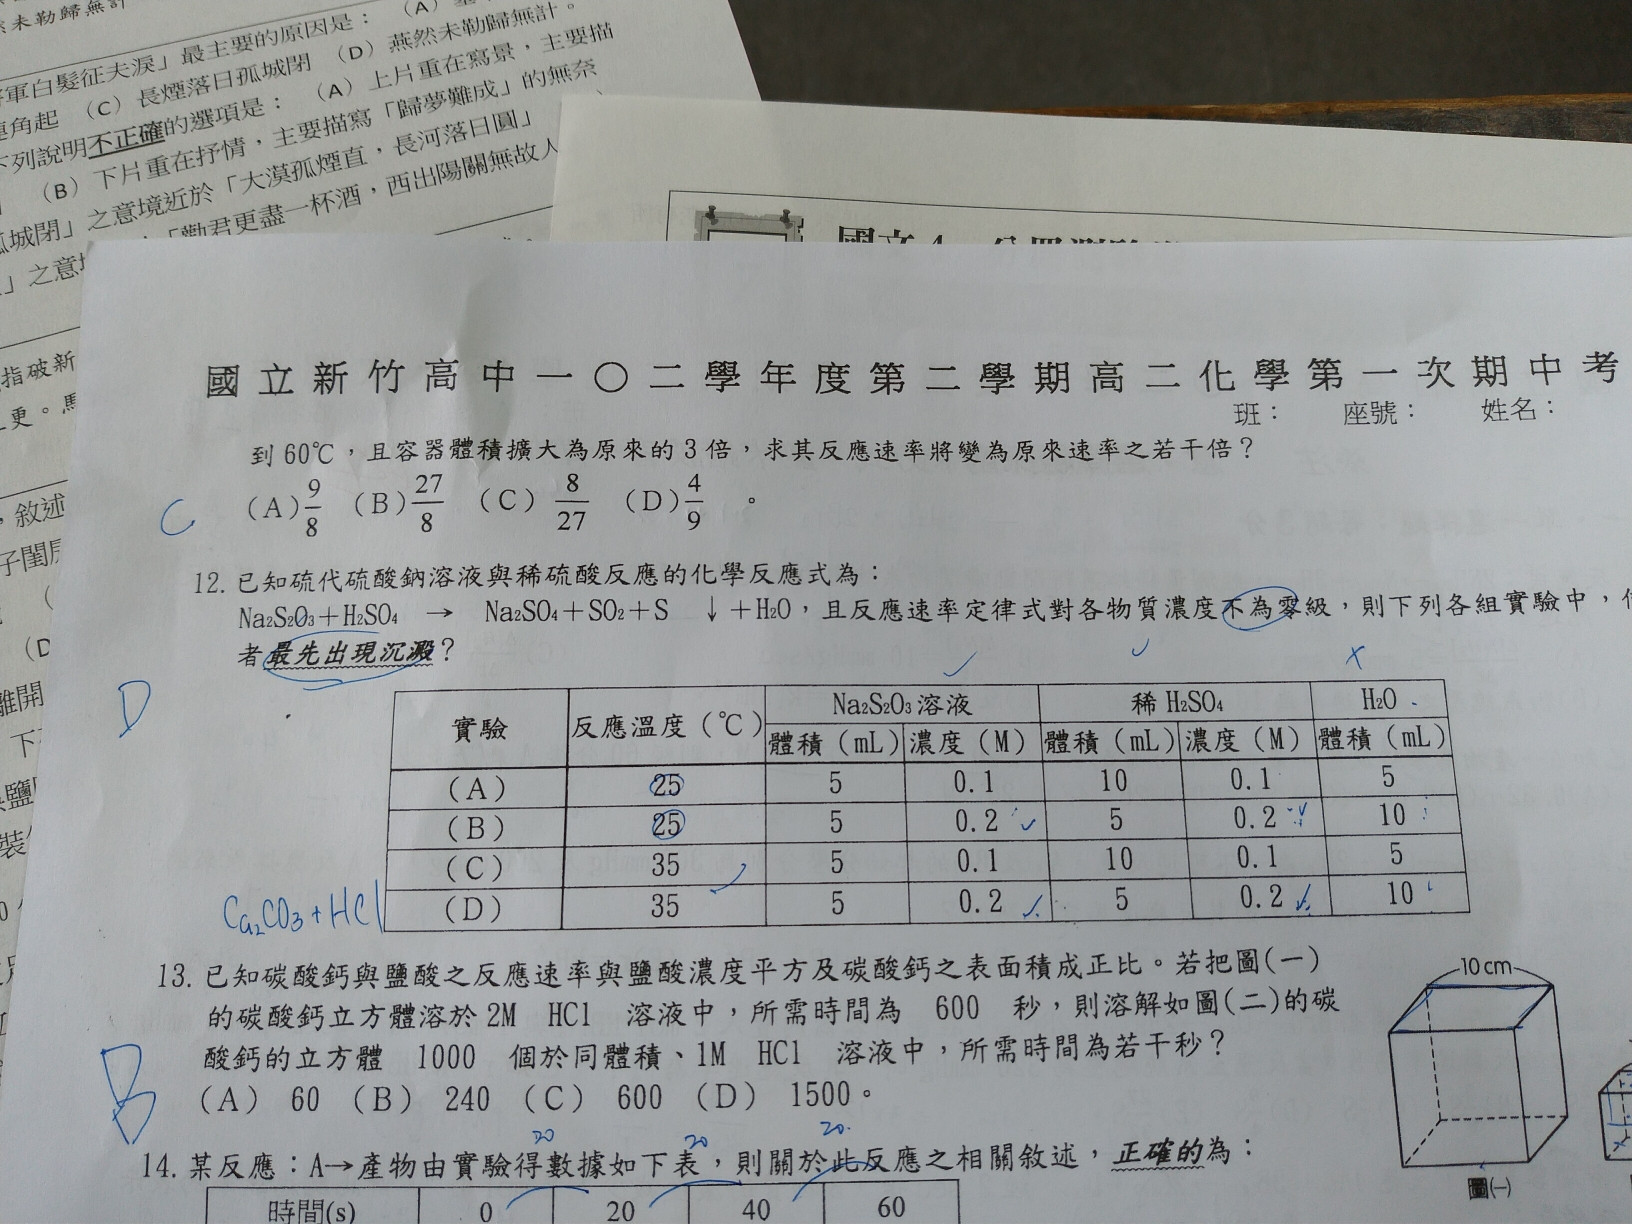 未勒歸無計
軍白髮征夫淚」最主要的原因是：（A）
角起 （C）長煙落日孤城閉 （D）燕然未勒歸無計。
下列說明不正確的選項是：（A）上片重在寫景，主要描
（B）下片重在抒情，主要描寫「歸夢難成」的無奈
孤城閉」之意境近於「大漠孤煙直，長河落日圓」
「勸君更盡一杯酒，西出陽關無故人
」之意
指破新
更。
，敘述
子閨房
（D
離開
下
國立新竹高中一○二學年度第二學期高二化學第一次期中考
班： 座號： 姓名：
到60℃，且容器體積擴大為原來的3倍，求其反應速率將變為原來速率之若干倍？
C （A）9/8 （B）27/8 （C）8/27 （D）4/9 。
12.已知硫代硫酸鈉溶液與稀硫酸反應的化學反應式為：
Na2S2O3＋H2SO4 → Na2SO4＋SO2＋S ↓＋H2O，且反應速率定律式對各物質濃度不為零級，則下列各組實驗中，
者最先出現沉澱？
D
實驗 反應溫度（℃） Na2S2O3溶液 稀H2SO4 H2O
體積（mL） 濃度（M） 體積（mL） 濃度（M） 體積（mL）
（A） 25 5 0.1 10 0.1 5
（B） 25 5 0.2 5 0.2 10
（C） 35 5 0.1 10 0.1 5
（D） 35 5 0.2 5 0.2 10
Ca2CO3+HCl
13.已知碳酸鈣與鹽酸之反應速率與鹽酸濃度平方及碳酸鈣之表面積成正比。若把圖(一)
的碳酸鈣立方體溶於2M HCl 溶液中，所需時間為 600 秒，則溶解如圖(二)的碳
酸鈣的立方體 1000 個於同體積、1M HCl 溶液中，所需時間為若干秒？
B （A） 60 （B） 240 （C） 600 （D） 1500。
10cm
圖(一)
20 20 20
14.某反應：A→產物由實驗得數據如下表，則關於此反應之相關敘述，正確的為：
時間(s) 0 20 40 60